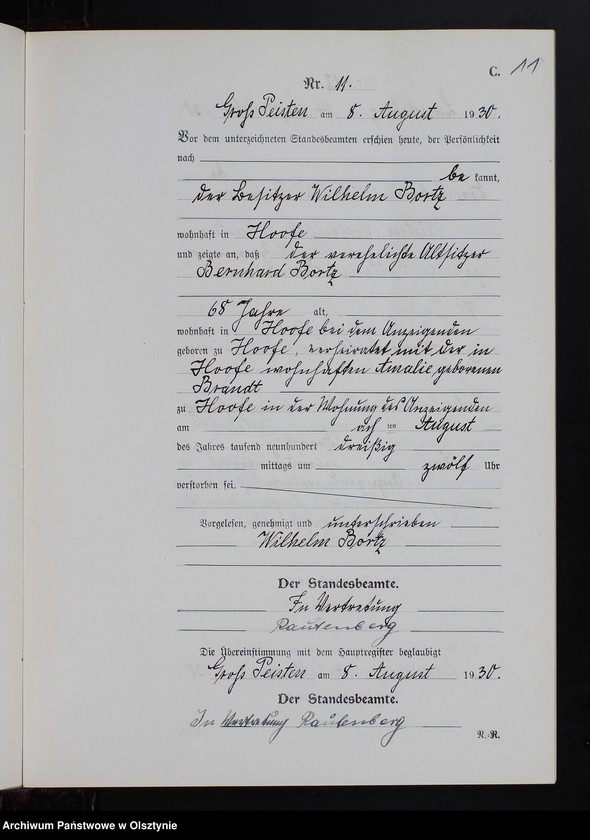 C. 11
Nr. 11.
Groß Peisten am 8. August 1930.
Vor dem unterzeichneten Standesbeamten erschien heute, der Persönlichkeit
nach
be kannt,
der Besitzer Wilhelm Bortz
wohnhaft in Hoofe
und zeigte an, daß der verehelichte Altsitzer
Bernhard Bortz
68 Jahre alt,
wohnhaft in Hoofe bei dem Anzeigenden
geboren zu Hoofe, verheiratet mit der in
Hoofe wohnhaften Amalie, geborenen
Brandt
zu Hoofe in der Wohnung des Anzeigenden
am ach ten August
des Jahres tausend neunhundert dreißig
mittags um zwölf Uhr
verstorben sei.
Vorgelesen, genehmigt und unterschrieben
Wilhelm Bortz
Der Standesbeamte.
In Vertretung
Rautenberg
Die Übereinstimmung mit dem Hauptregister beglaubigt
Groß Peisten am 8. August 1930.
Der Standesbeamte.
In Vertretung Rautenberg
R.-R.
Archiwum Państwowe w Olsztynie